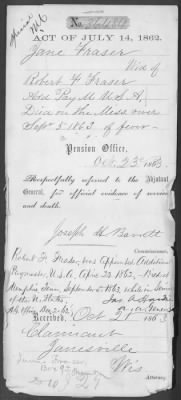 No. 34484
ACT OF JULY 14, 1862.
Jane Fraser
Wid of
Robert F Fraser
Add Pay M U.S.A.
Died on the
Sept 5 1863 of fever
Pension Office,
Oct 23d 1863
Respectfully referred to the Adjutant
General, for official evidence of service
and death.
Joseph H Barrett
Commissioner.
Robert F. Fraser, was Appointed Additional
Paymaster, U.S.A. 1862. Died at
Memphis, Tenn, September 5, 1863, while in Service
of the U. States,
Received, Oct 27 1863
Claimant
Janesville
Wis
Attorney.